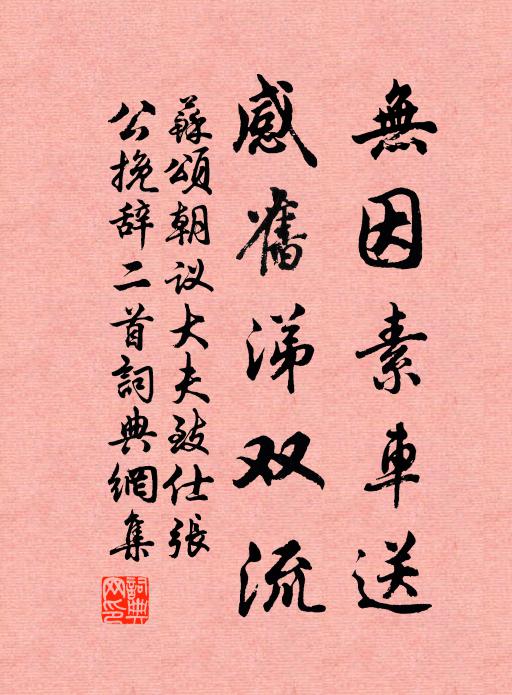 無因素車送
感舊涕双流
蘇頌朝议大夫致仕張
公挽辞二首詞典網集
詞典
网印